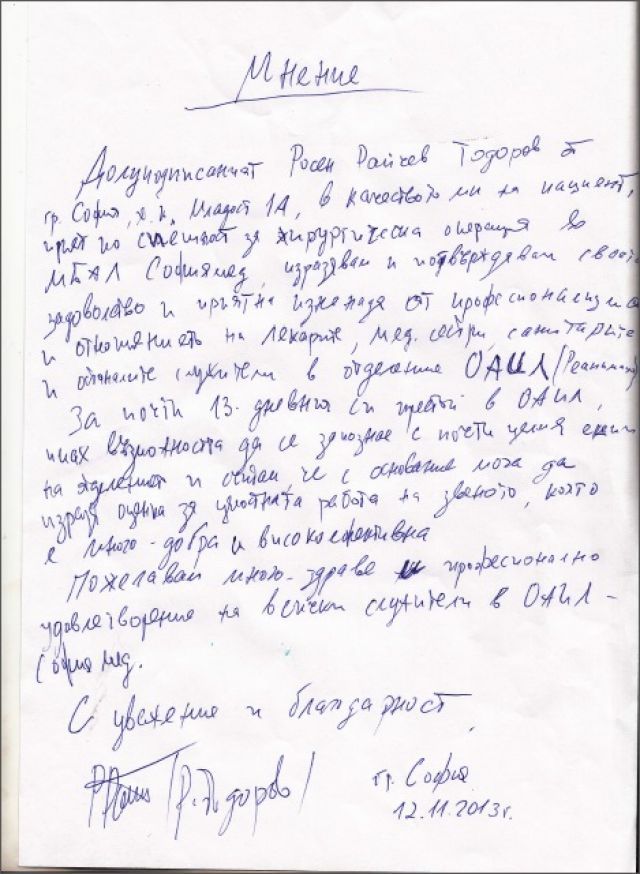 Мнение
Долуподписаният Росен Райчев Тодоров от
гр. София, ж.к. Младост 1А, в качеството ми на пациент,
приет по спешност за хирургическа операция във
МБАЛ Софиямед, изразявам и потвърждавам своето
задоволство и приятна изненада от професионализма
и отношнията на лекарите, мед. сестри, санитарите
и останалите служители в отделение ОАИЛ (Реанимация)
За почти 13. дневния си престой в ОАИЛ,
имах възможността да се запозная с почти целия екип
на и считам, че с основание мога да
изразя оценка за цялостната работа на звеното, която
е много-добра и високоефективна
Пожелавам много-здраве и професионално
удовлетворение на всички служители в ОАИЛ -
София мед.
С уважение и благодарност
/Р. Тодоров/
гр. София
12.11.2013г.